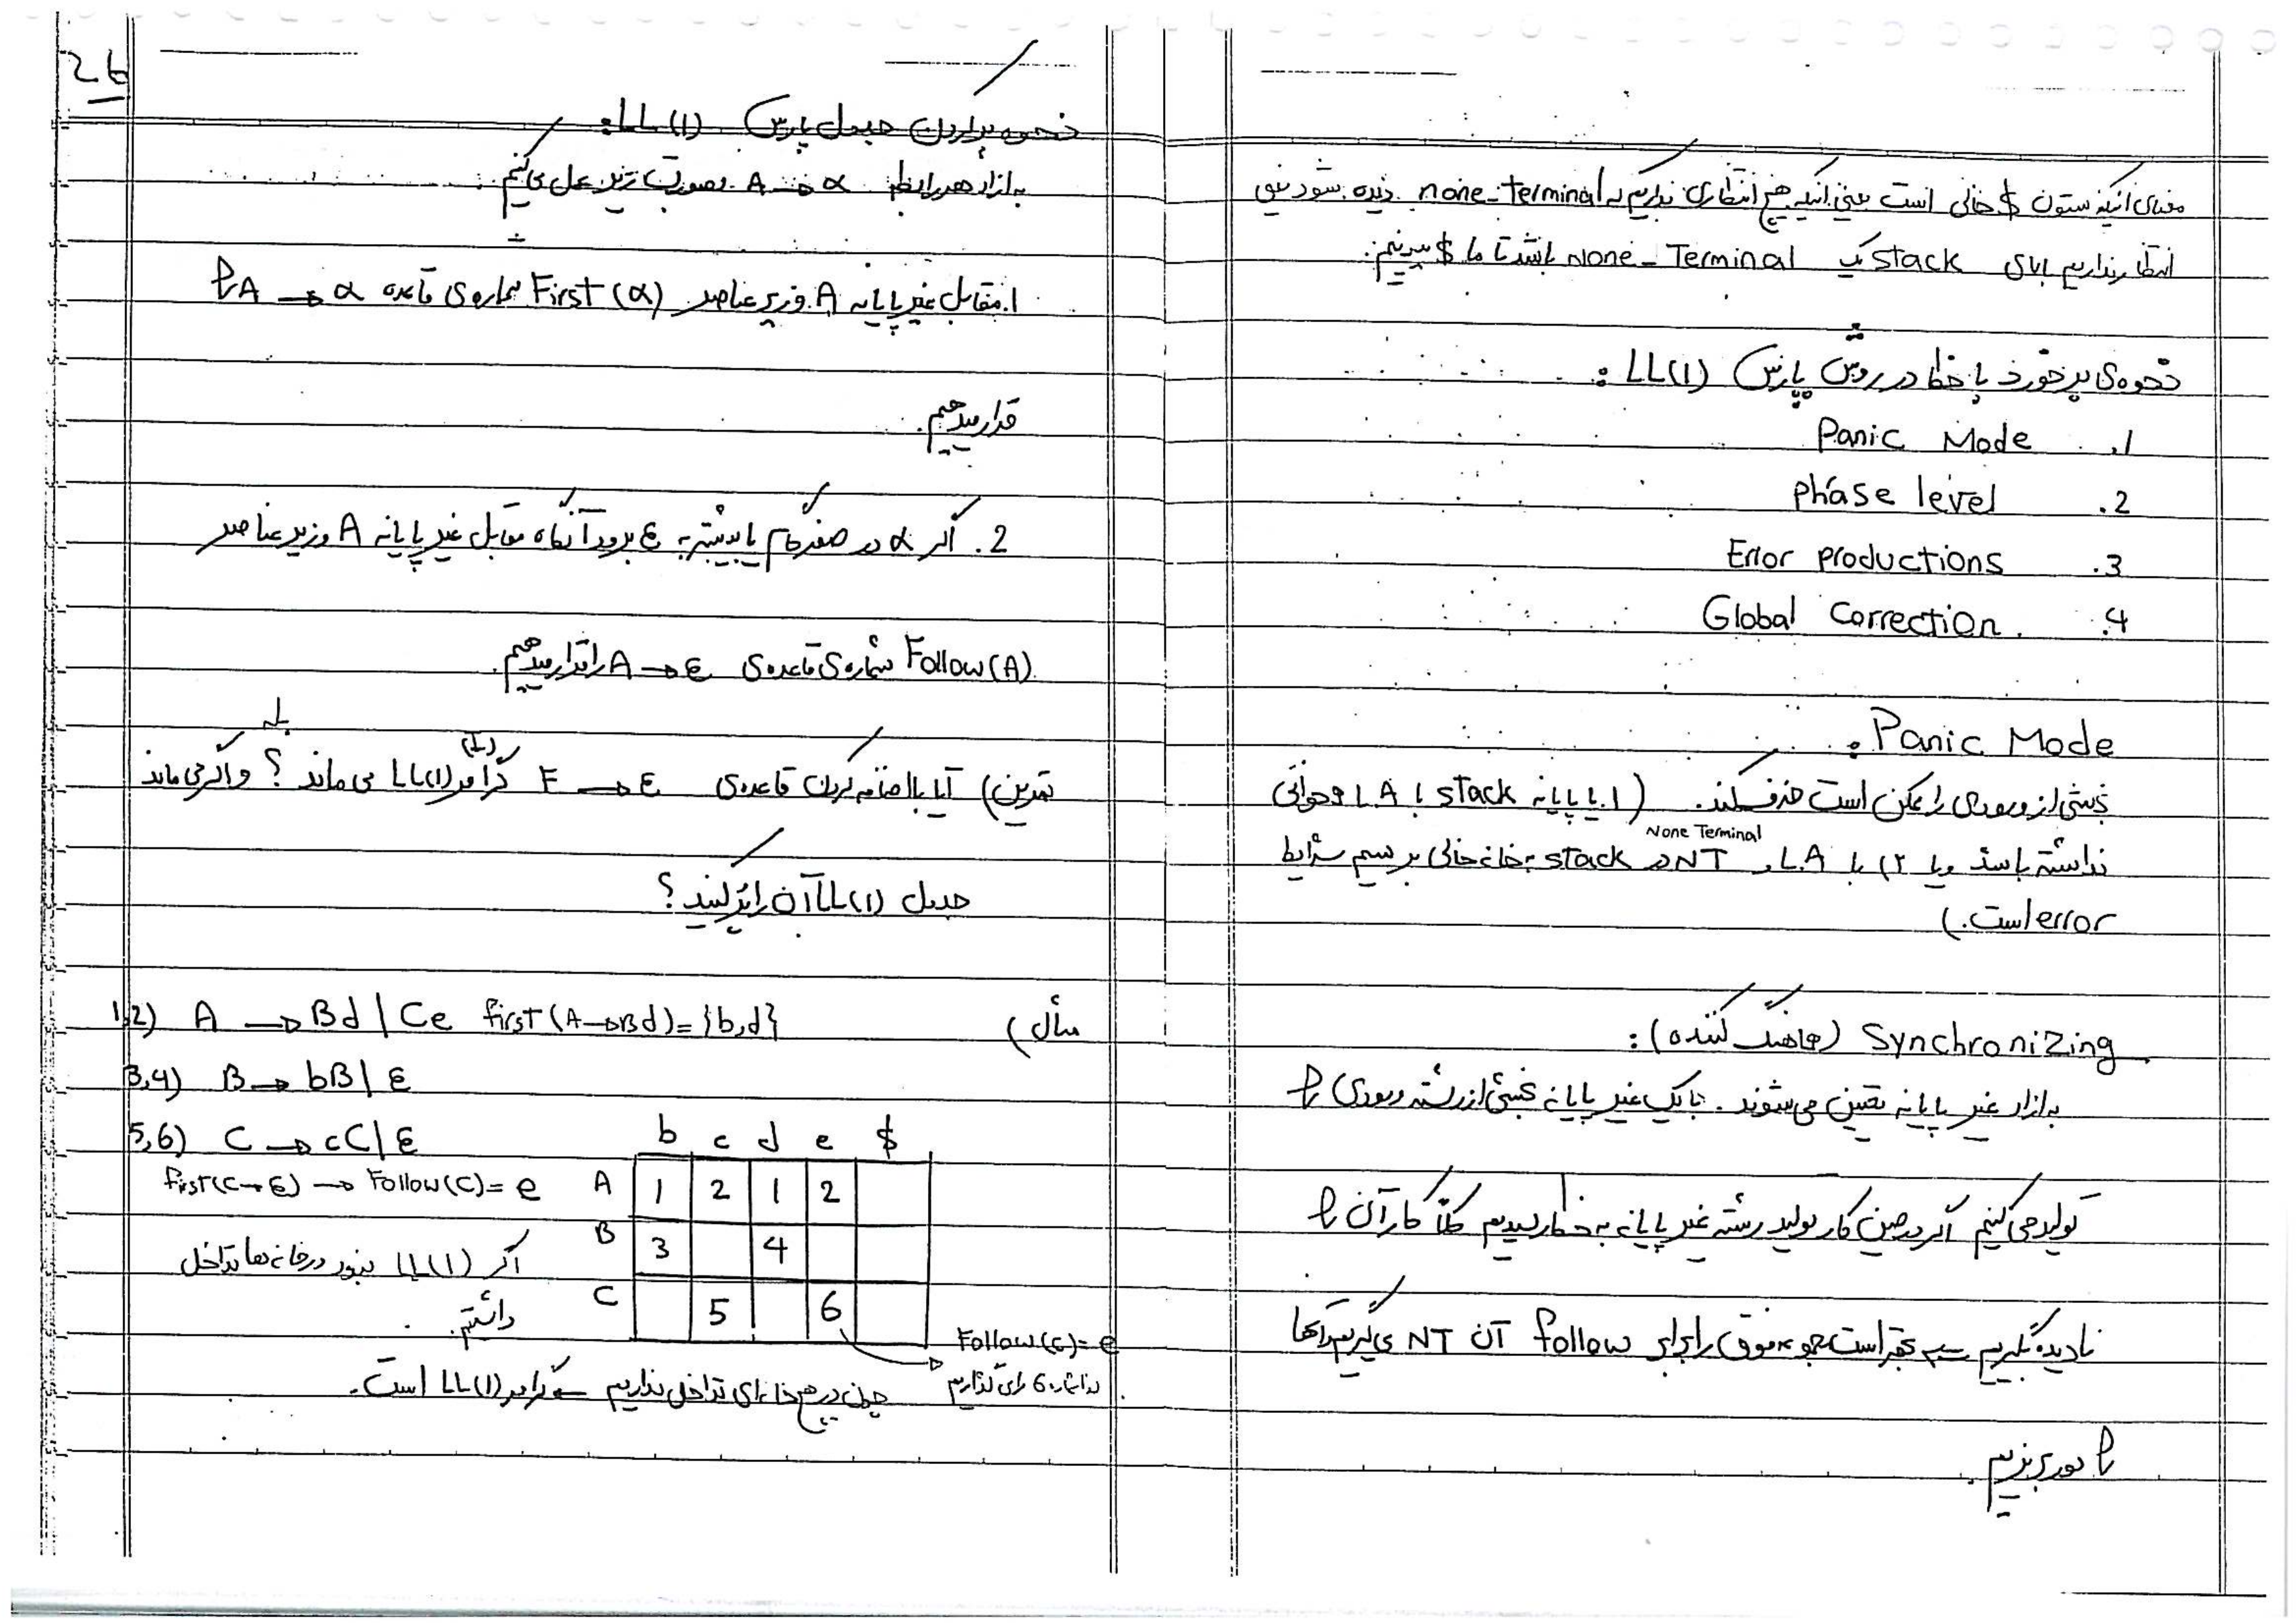 26
نحوه پر کردن جدول پارس LL(1):
به ازاء هر رابطه A → α بصورت زیر عمل می‌کنیم
1. مقابل غیر پایانه A و زیر عناصر First(α) شماره‌ی قاعده A → α را
قرار میدهیم.
2. اگر α در صفر گام یا بیشتر به ε برود آنگاه مقابل غیر پایانه A و زیر عناصر
Follow(A) شماره‌ی قاعده‌ی A → ε را قرار میدهیم.
بله
تمرین) آیا با اضافه کردن قاعده‌ی F → ε گرامر (1) LL(1) می ماند ؟ و اگر می ماند
جدول LL(1) آن را پر کنید ؟
مثال)
1,2) A → Bd | Ce first(A→Bd)={b,d}
3,4) B → bB | ε
5,6) C → cC | ε
first(C→ε) → Follow(C)= e
b c d e $
A 1 2 1 2
B 3 4
C 5 6
اگر LL(1) نبود در خانه ها تداخل
داشتیم.
Follow(C)= e
لذا شماره 6 را می گذاریم
چون در هیچ خانه‌ای تداخل نداریم ⇐ گرامر LL(1) است.
معنای اینکه ستون $ خالی است یعنی اینکه هیچ انتظاری نداریم که none-terminal دیده شود یعنی
انتظار نداریم بالای stack یک None-Terminal باشد تا ما $ ببینیم.
نحوه‌ی برخورد با خطا در روش پارس LL(1) :
1. Panic Mode
2. phase level
3. Error productions
4. Global Correction.
Panic Mode :
بخشی از ورودی را ممکن است حذف کند. (1. یا پایانه stack با L.A همخوانی
None Terminal
نداشته باشد و یا 2) با L.A و NT در stack به خانه خالی برسیم شرایط
error است.)
Synchronizing (هماهنگ کننده) :
به ازاء غیر پایانه تعیین می شوند. با یک غیر پایانه بخشی از رشته ورودی را
تولید می کنیم اگر در حین کار تولید رشته غیر پایانه به خطا رسیدیم کلاً کار آن را
نادیده بگیریم پس بهتر است مجموعه فوق را برابر Follow آن NT بگیریم آنها
را دور بریزیم.